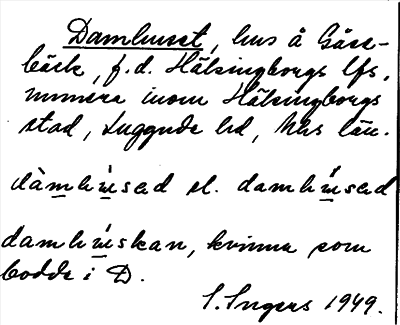 Damhuset, hus å Gåse-
bäck, f.d. Hälsingborgs lfs,
numera inom Hälsingborgs
stad, Luggude hd, Mhs län.
dàmhùsəd el. damhúsəd
damhúskan, kvinna som
bodde i D.
S. Ingers 1949.